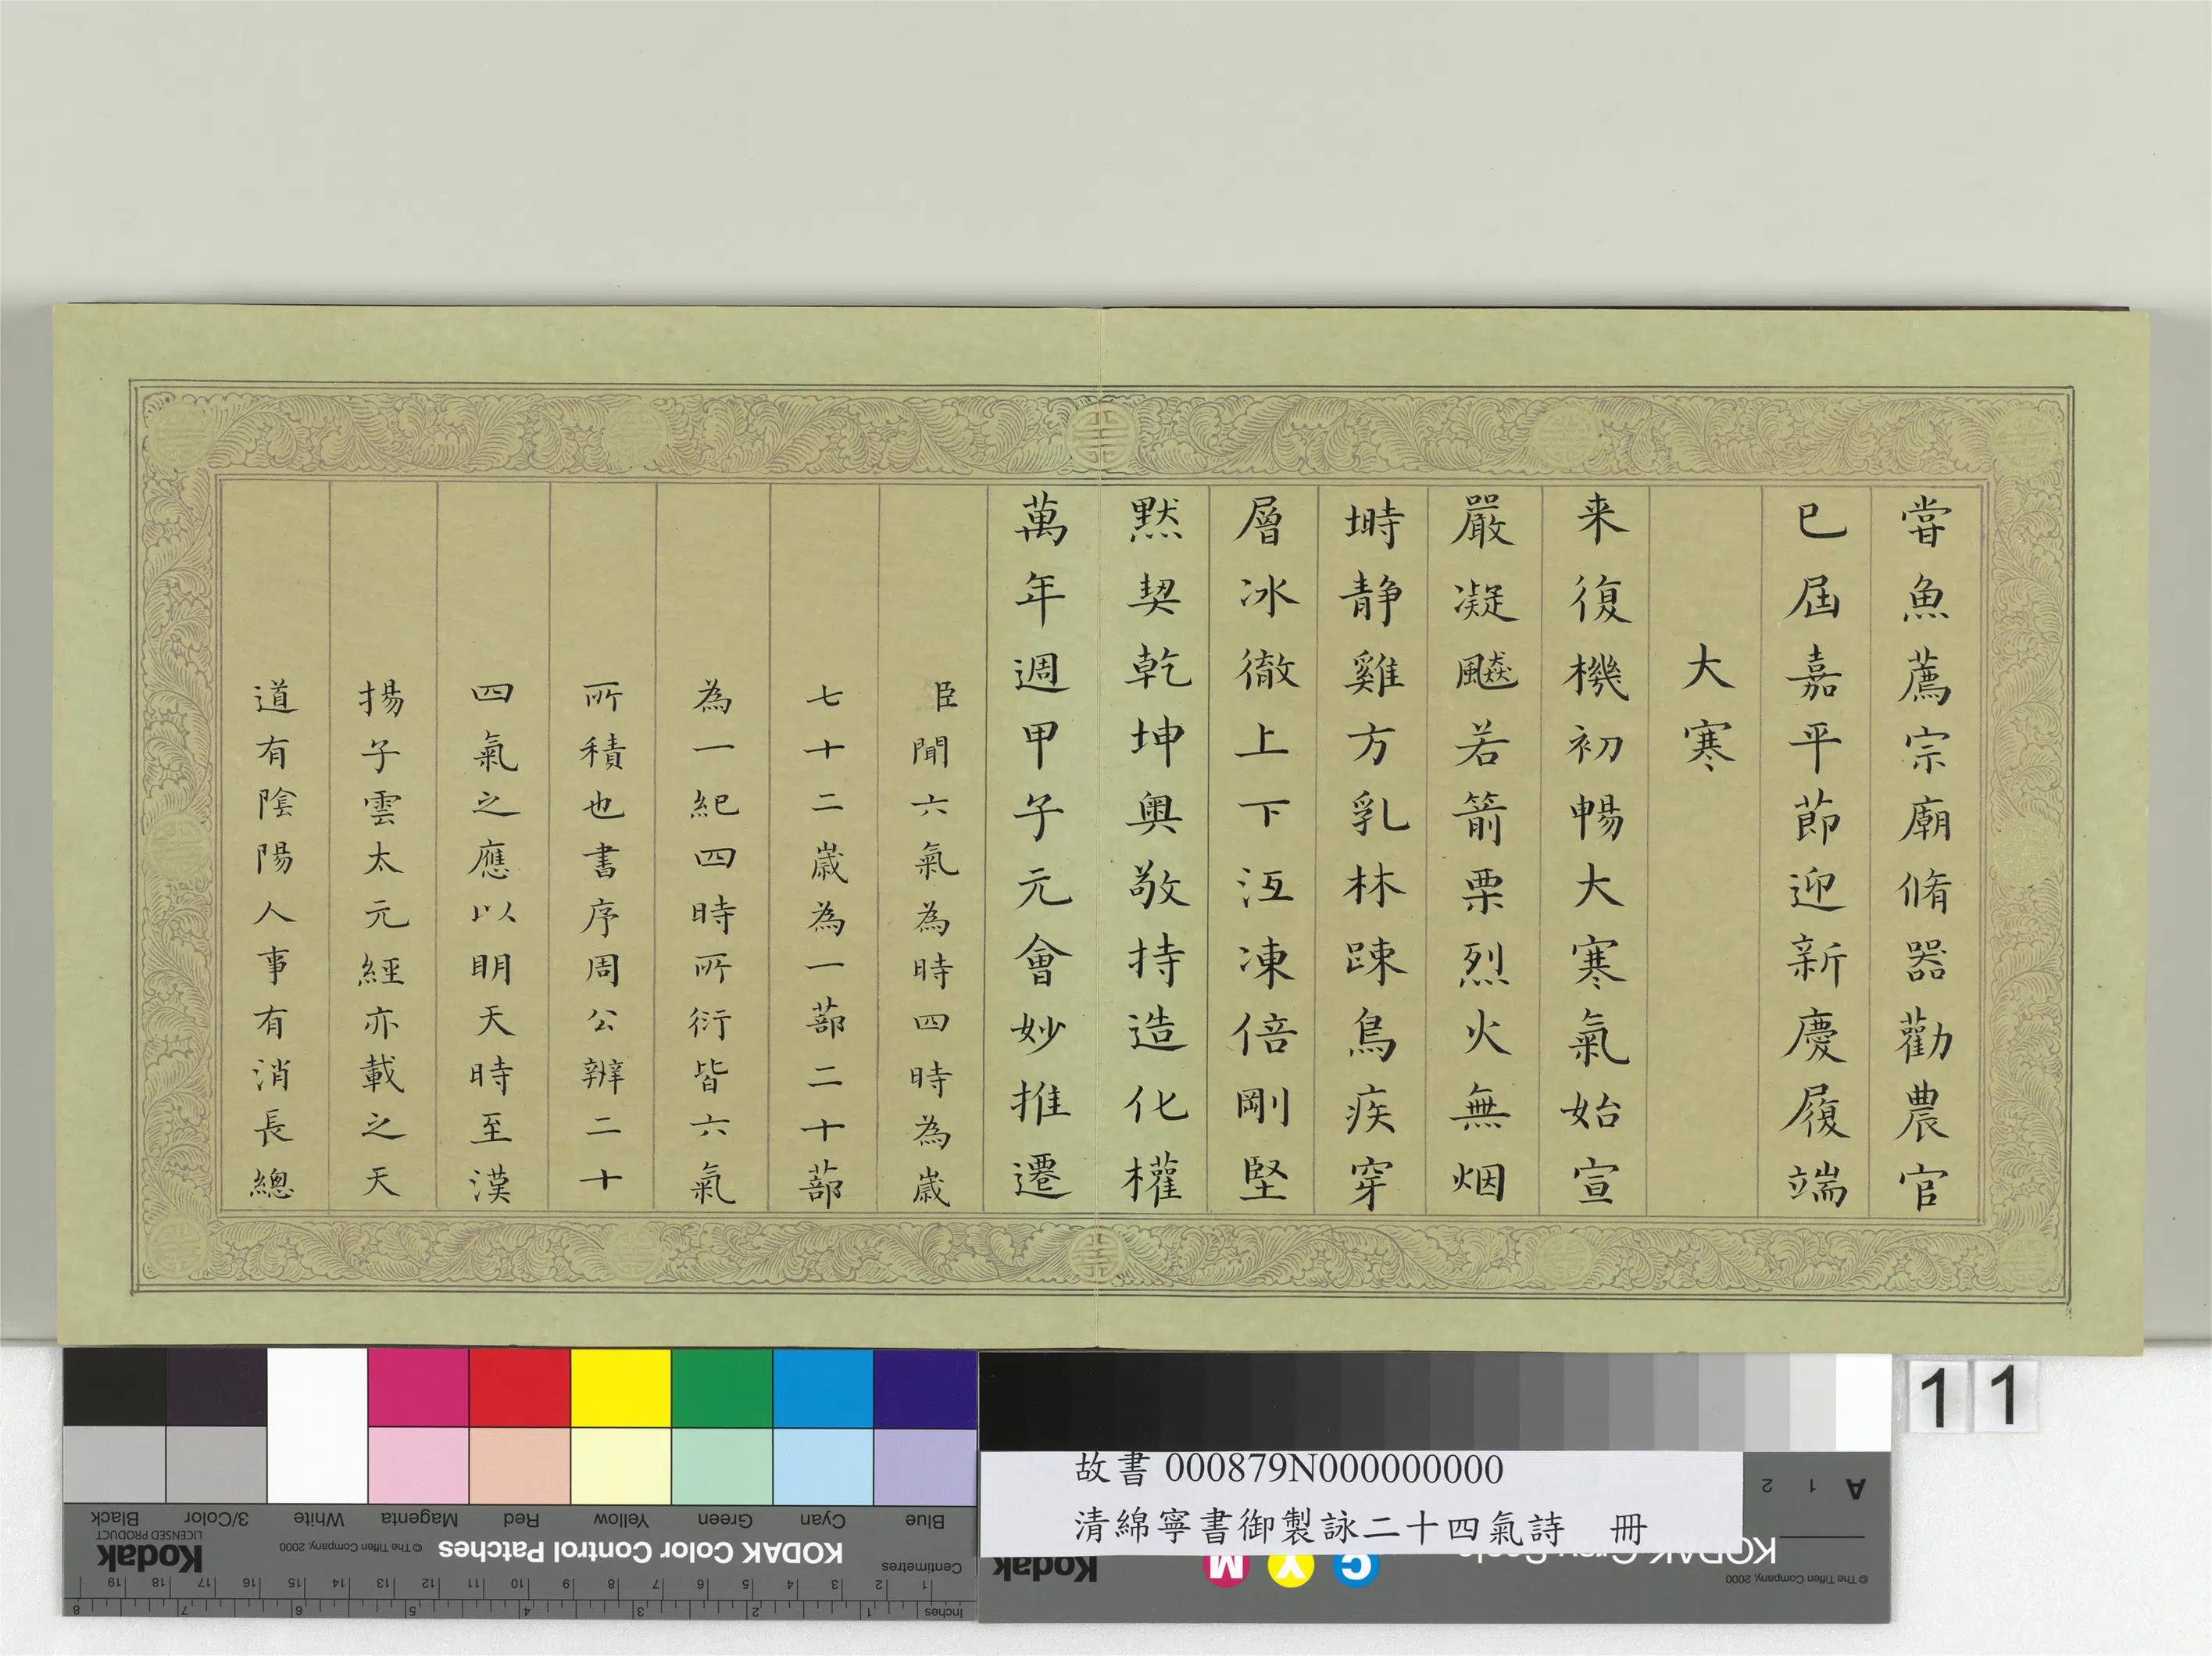 甞魚薦宗廟脩器勸農官
已屆嘉平節迎新慶履端
大寒
来復機初暢大寒氣始宣
嚴凝飈若箭栗烈火無烟
塒静雞方乳林踈鳥疾穿
層冰徹上下沍凍倍剛堅
黙契乾坤奥敬持造化權
萬年週甲子元會妙推遷
臣聞六氣為時四時為歲
七十二歲為一蔀二十蔀
為一紀四時所衍皆六氣
所積也書序周公辨二十
四氣之應以明天時至漢
揚子雲太元經亦載之天
道有陰陽人事有消長總
11
故書 000879N000000000
清綿寧書御製詠二十四氣詩　冊
A 1 2
Blue Cyan Green Yellow Red Magenta White 3/Color Black
KODAK Color Control Patches © The Tiffen Company, 2000 Kodak LICENSED PRODUCT
Centimetres 1 2 3 4 5 6 7 8 9 10 11 12 13 14 15 16 17 18 19
Inches 1 2 3 4 5 6 7 8
© The Tiffen Company, 2000
KODAK
C Y M
Kodak